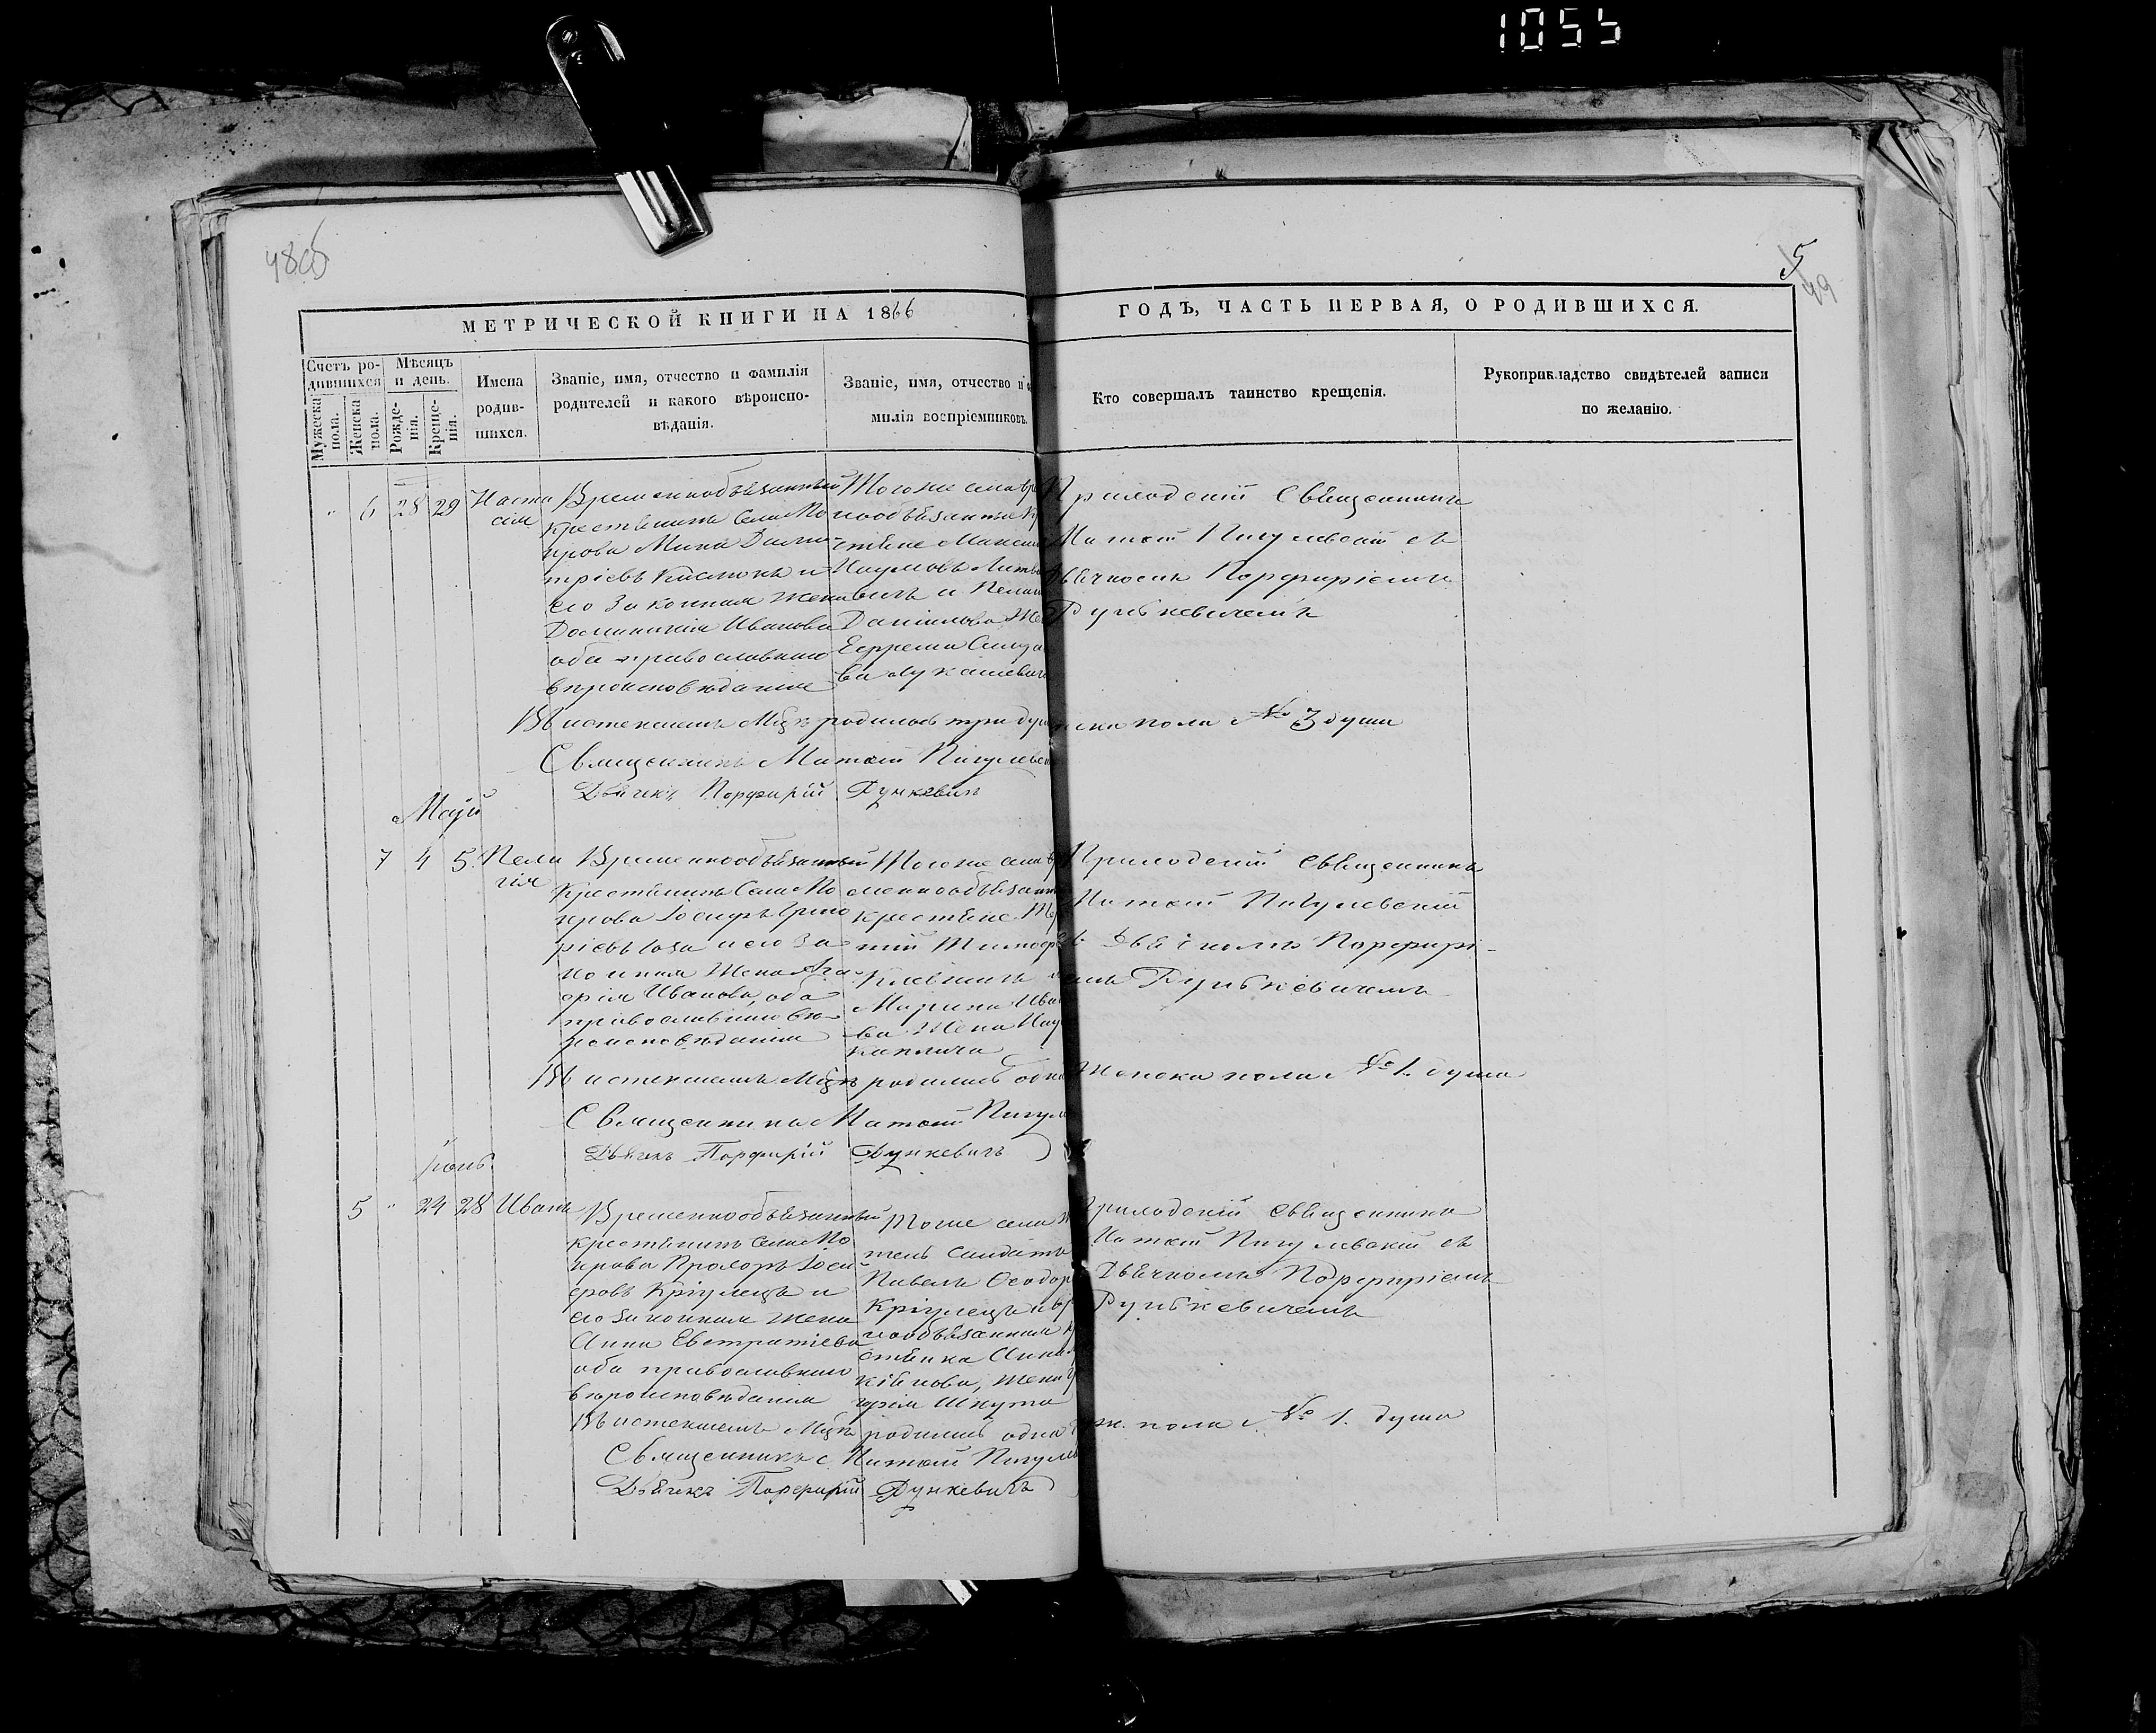 1055
48об
5
49
МЕТРИЧЕСКОЙ КНИГИ НА 1866
ГОДЪ, ЧАСТЬ ПЕРВАЯ, О РОДИВШИХСЯ.
Счетъ ро-
дившихся
Мужеска
пола.
Женска
пола.
Мѣсяцъ
и день.
Рожде-
нія.
Креще-
нія.
Имена
родив-
шихся.
Званіе, имя, отчество и фамилія
родителей и какого вѣроиспо-
вѣданія.
Званіе, имя, отчество и фа
милія воспріемниковъ.
Кто совершалъ таинство крещенія.
Рукоприкладство свидѣтелей записи
по желанію.
" 6 28 29
Наста
сія
Временнообязанный
крестьянинъ села По
Мина Дими-
тріевъ и
его законная жена
Домникія Иванова
оба православнаго
вѣроисповѣданія
Тогоже села вре
ннообязанные кр
стьяне Максимъ
Наумовъ
и
Даніилова Же
Ефрема
ва Лукашевич
Приходскій Священникъ
Матѳей Пигулевскій съ
Дьячкомъ Порфиріемъ
Рункевичемъ
Въ истекшемъ Мцѣ родилось три ду
нска пола №о 3 души
Священникъ Матѳей Пигулевск
Дьячекъ Порфирій Рункевичъ
Май
7 4 5.
Пела
гія
Временнообязанный
Крестьянинъ Села По
Іосифъ Григо
ріевъ и его За
конная Жена Ага
фія Иванова, оба
православнаго вѣ
роисповѣданія
Тогоже села в
ременнообязанн
крестьяне
Тимоф
Марина Ива
ва Жена
Каплича
Приходскій священникъ
Матѳей Пигулевскій
съ Дьячкомъ Порфирі-
емъ Рункевичемъ
Въ истекшемъ Мцѣ родилась одна
Женска пола №о 1. душа
Священникъ Матѳей Пигулев
Дьячекъ Порфирій Рункевичъ
Іюнь
5 " 24 28
Иванъ
Временнообязанный
крестьянинъ села По
Прохоръ Іоси
фовъ Кріулецъ и
его законная жена
Анна Евстратіева
оба православнаго
вѣроисповѣданія
Тогже села
солдатъ
Павелъ Ѳеодор
Кріулецъ и вр
ннообязанная к
стьянка Анна
жена
горія Шкута
Приходскій священникъ
Матѳей Пигулевскій съ
Дьячкомъ Порфиріемъ
Рункевичемъ
Въ истекшемъ Мцѣ родилась одна
ж. пола №о 1. душа
Священникъ Матѳей Пигулев
Дьячекъ Порфирій Рункевичъ